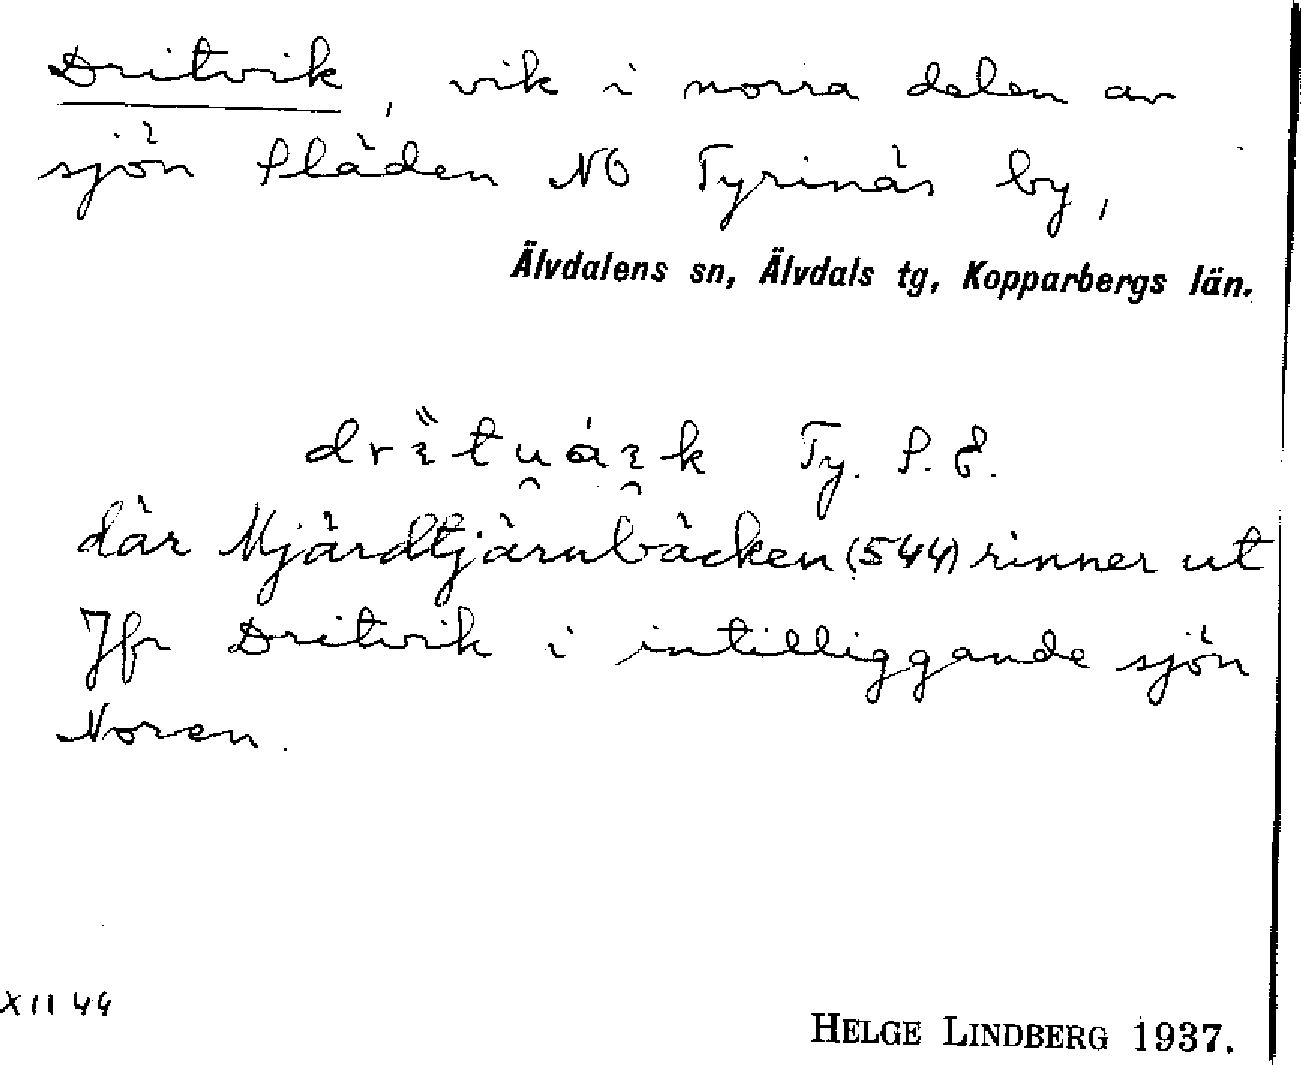 Dritvik, vik i norra delen av
sjön Släden NO Tyrinäs by,
Älvdalens sn, Älvdals tg, Kopparbergs län.
Ty. S. E.
där Mjärdtjärnbäcken (544) rinner ut
Jfr Dritvik i intilliggande sjön
Noren.
XII 44
HELGE LINDBERG 1937.